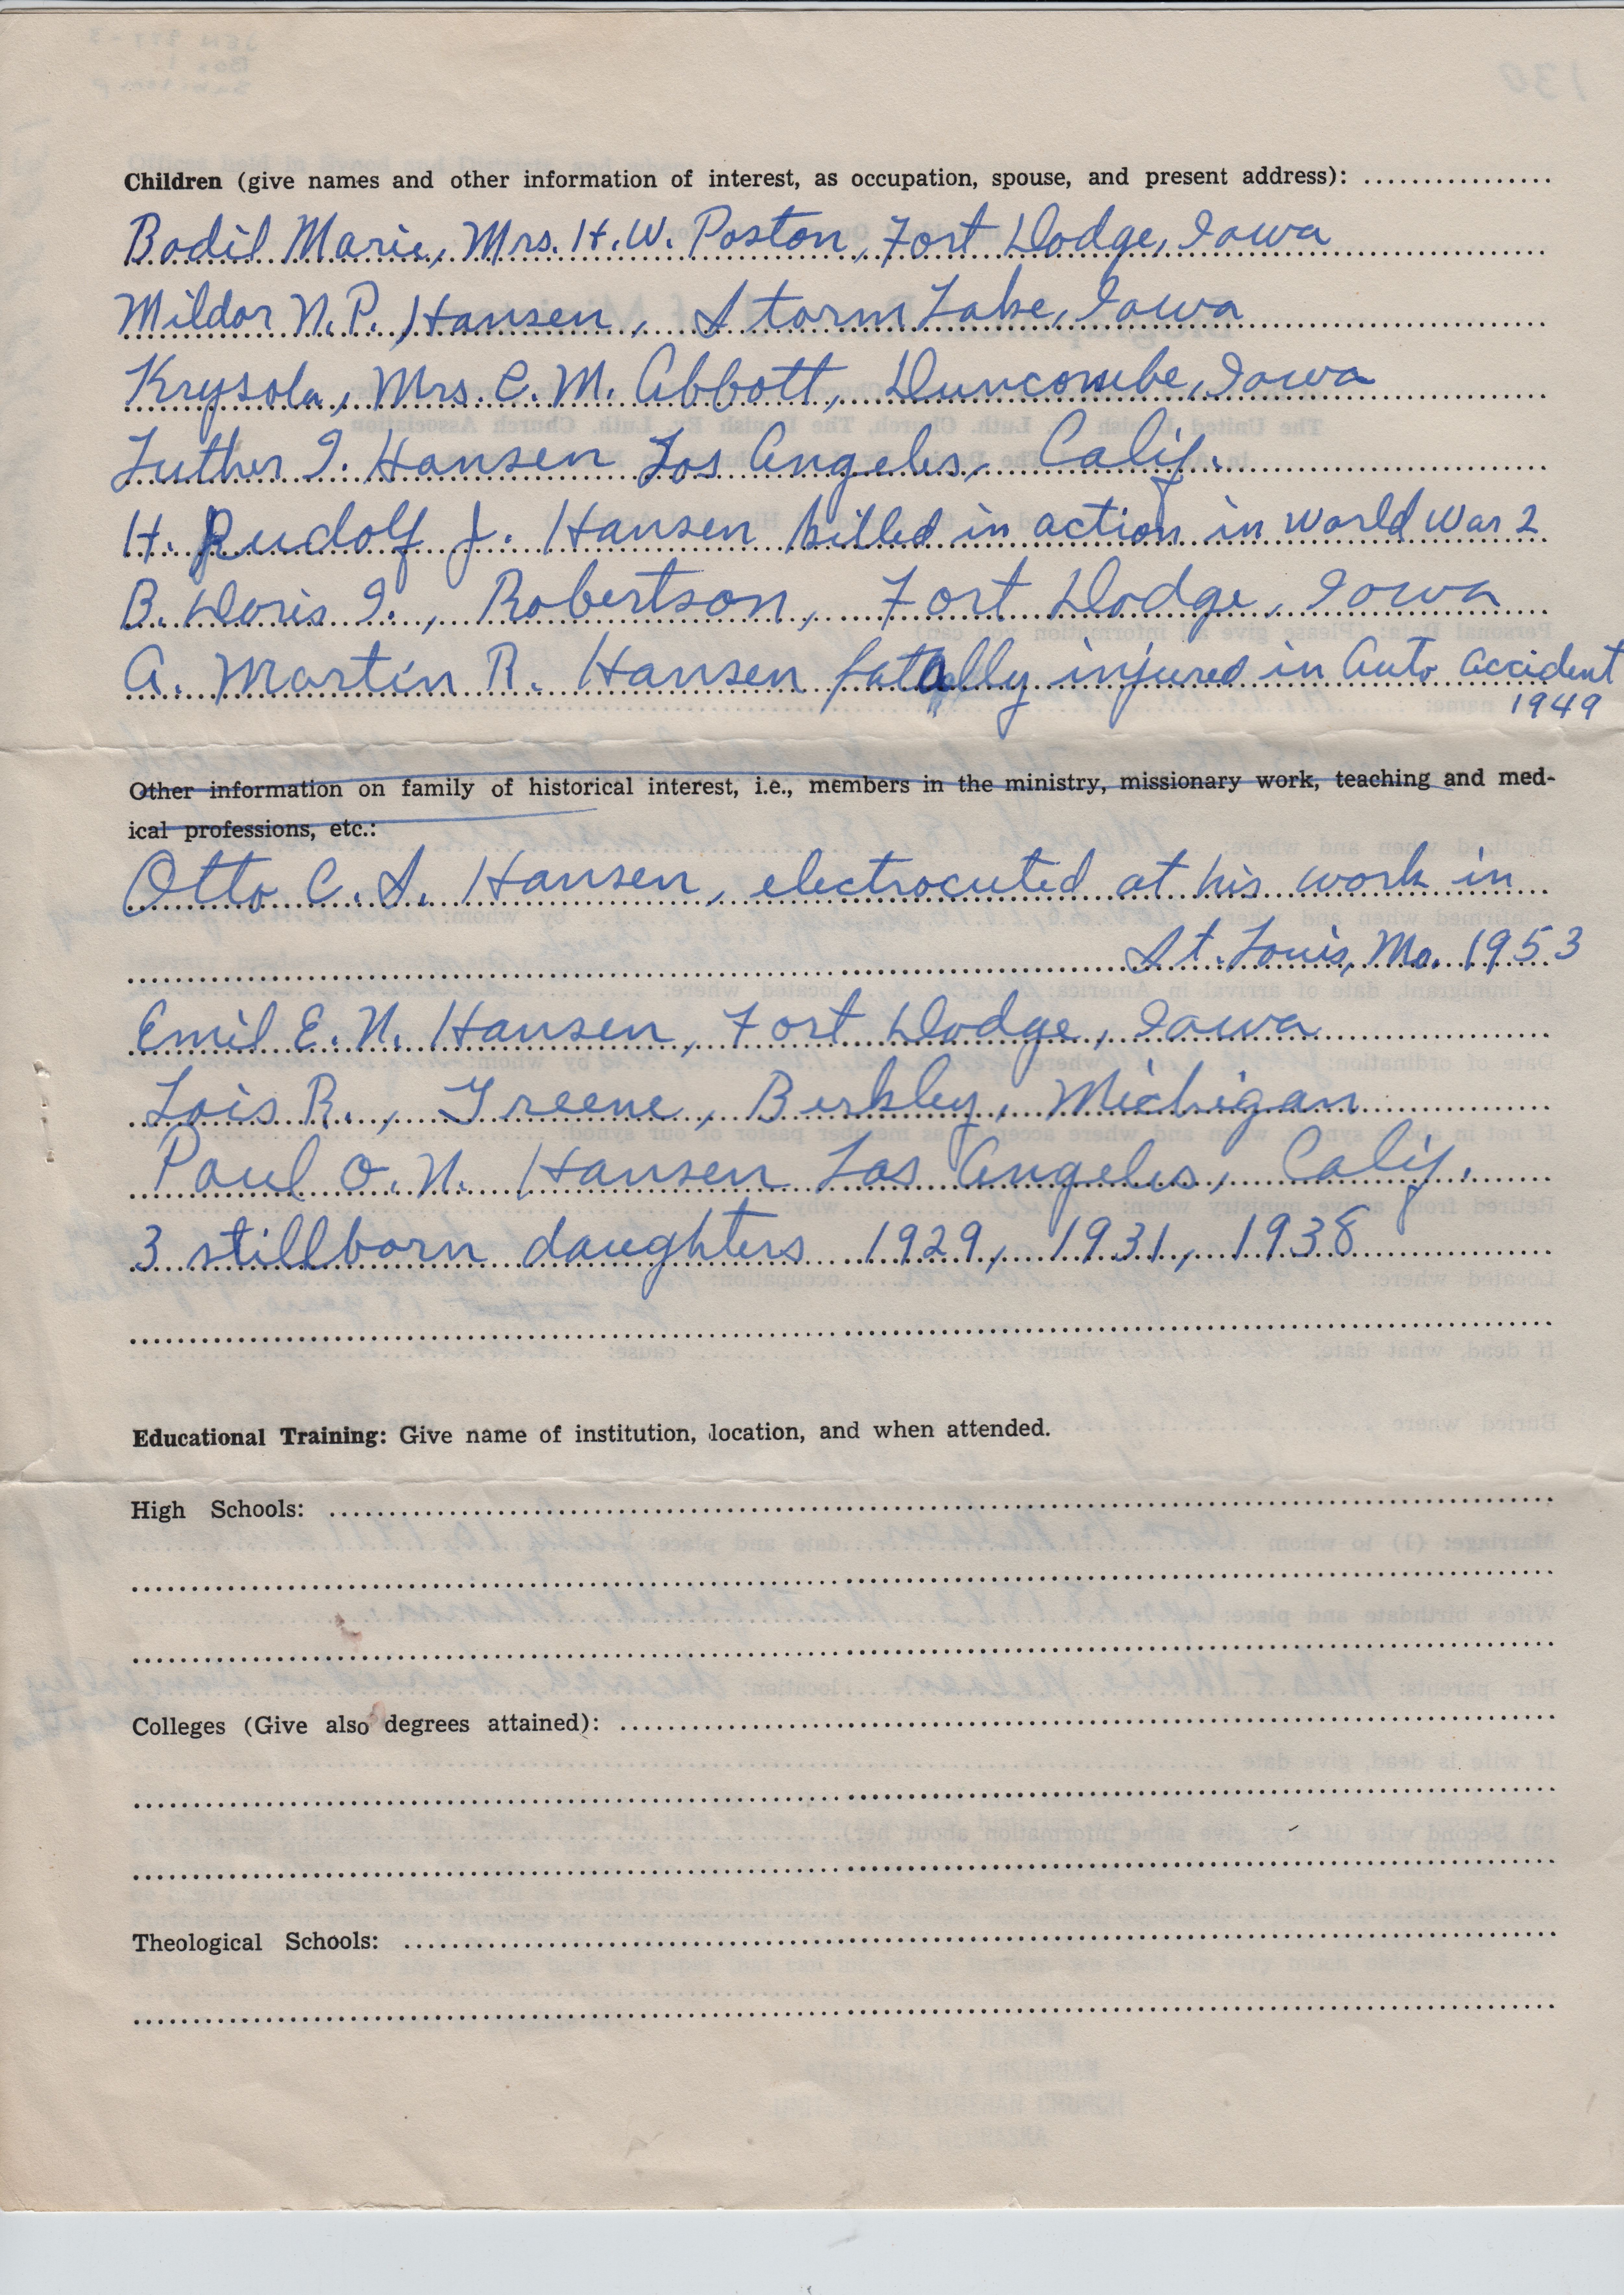 Children (give names and other information of interest, as occupation, spouse, and present address):
Bodil Marie, Mrs. H. W. Poston, Fort Dodge, Iowa
Mildor N. P. Hansen, Storm Lake, Iowa
Krysola, Mrs. C. M. Abbott, Duncombe, Iowa
Luther I. Hansen Los Angeles, Calif.
H. Rudolf J. Hansen killed in action in World War 2
B. Doris I., Robertson, Fort Dodge, Iowa
A. Martin R. Hansen fatally injured in Auto accident
1949
Other information on family of historical interest, i.e., members in the ministry, missionary work, teaching and med-
ical professions, etc.:
Otto C. S. Hansen, electrocuted at his work in
St. Louis, Mo. 1953
Emil E. N. Hansen, Fort Dodge, Iowa
Lois R., Greene, Berkley, Michigan
Paul O. N. Hansen Los Angeles, Calif.
3 stillborn daughters 1929, 1931, 1938
Educational Training: Give name of institution, location, and when attended.
High Schools:
Colleges (Give also degrees attained):
Theological Schools: